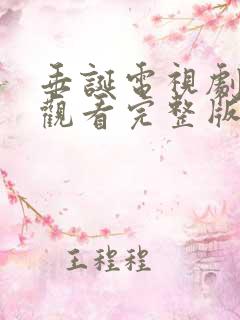 垂誕電視劇
觀看完整版
王程程